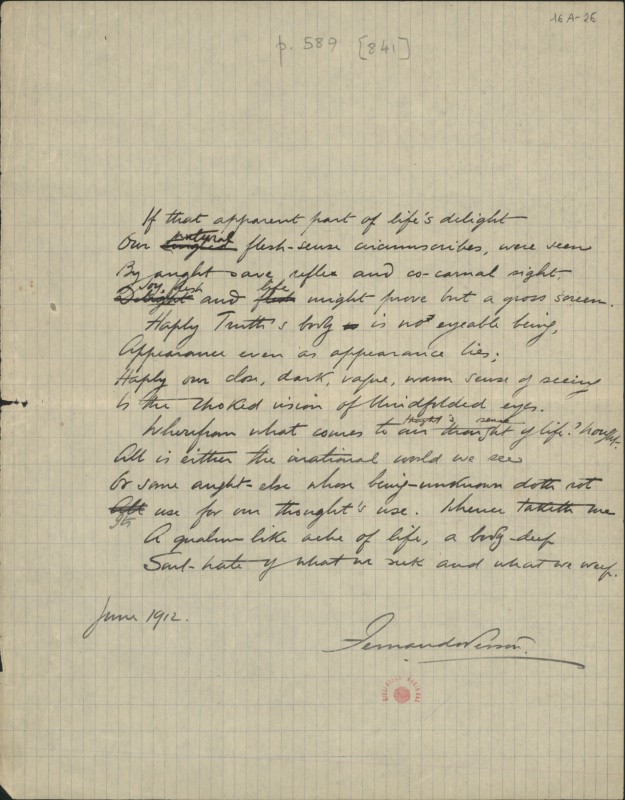 16A-26
p. 589 [841]
If that apparent part of life's delight
natural
Our tingled flesh-sense circumscribes, were seen
By aught save reflex and co-carnal sight
Joy, flesh life
Delight and flesh might prove but a gross screen.
Haply Truth's body is is not eyeable being,
Appearance even as appearance lies;
Haply our close, dark, vague, warm sense of seeing
Is the choked vision of blindfolded eyes.
thought's sense
Wherefrom what comes to our thought of life? Nought.
All is either the irrational world we see
Or some aught-else whose being-unknown doth rot
Its
All use for our thought's use. Whence taketh me
A qualm-like ache of life, a body-deep
Soul-hate of what we seek and what we weep.
June 1912.
Fernando Pessôa.
BIBLIOTECA NACIONAL